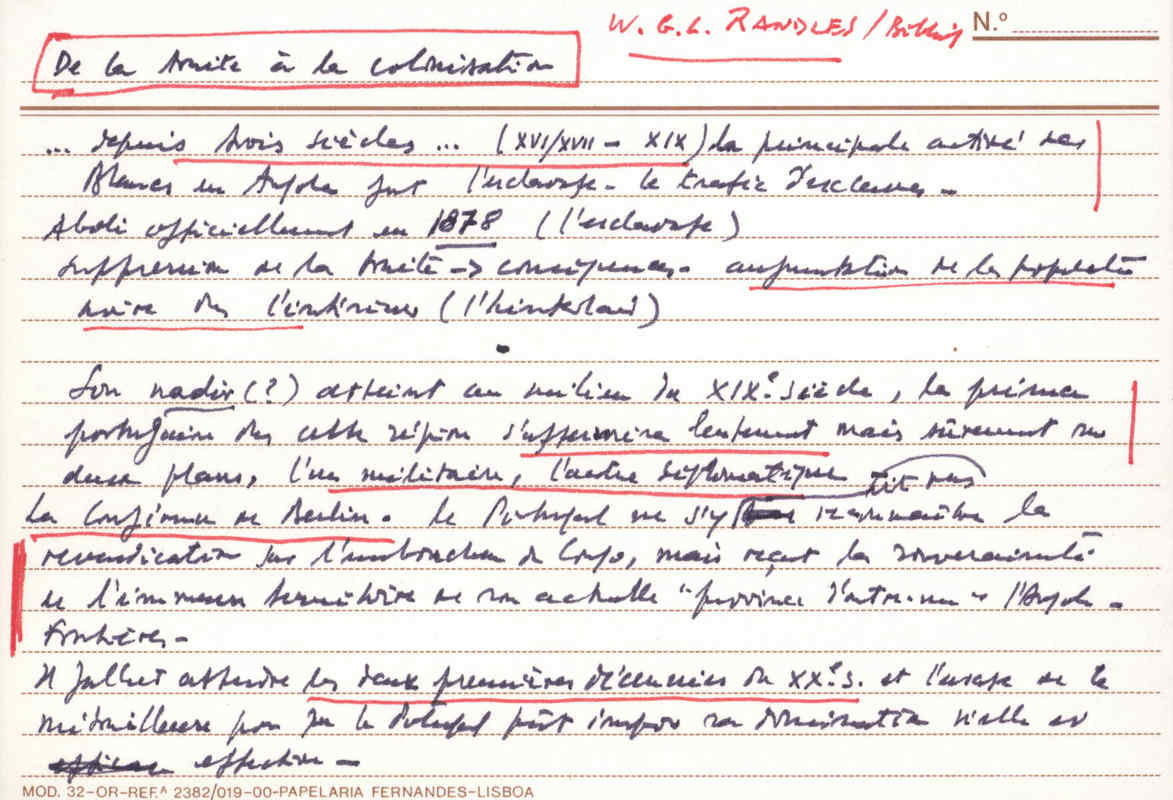 W. G. L. RANDLES / Biblig N.º
De la traite à la colonisation
... depuis trois siècles ... (XVI/XVII – XIX) la principale activé des
Blancs en Angola fut l'esclavage – le trafic d'esclaves –
Aboli officiellement en 1878 (l'esclavage)
Suppression de la traite –> conséquence – augmentation de la population
noire dans l'intérieur (l'hinterland)
Son nadir (?) atteint au milieu du XIXe siècle, la présence
portugaise dans cette région s'affermira lentement mais sûrement sur
deux plans, l'un militaire, l'autre diplomatique
La Conférence de Berlin. Le Portugal ne s'y vit pas reconnaître la
revendication sur l'embouchure du Congo, mais reçut la souveraineté
de l'immense territoire de son actuelle "province d'outre-mer" l'Angola –
Frontières –
Il fallut attendre les deux premières décennies du XXe s. et l'usage de la
mitrailleuse pour que le Portugal pût imposer sa domination réelle et
effective –
MOD. 32-OR-REF.ª 2382/019-00-PAPELARIA FERNANDES-LISBOA